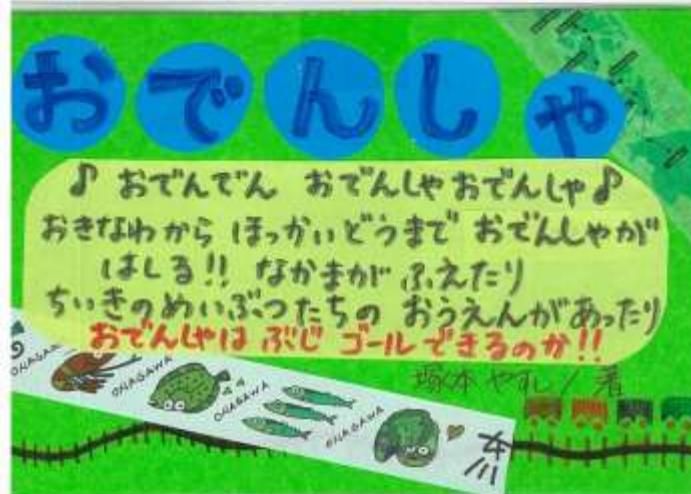 おでんしゃ
♪ おでんでん おでんしゃおでんしゃ♪
おきなわから ほっかいどうまで おでんしゃが
はしる!! なかまが ふえたり
ちいきのめいぶつたちの おうえんがあったり
おでんしゃは ぶじ ゴール できるのか!!
塚本 やすし/著
ONAGAWA
ONAGAWA
ONAGAWA
ONAGAWA